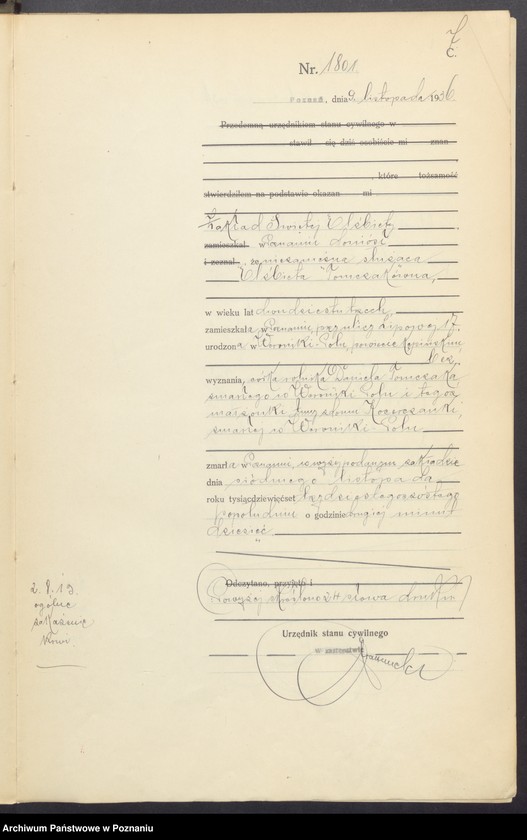 Z
c.
Nr. 1801.
Poznań, dnia 9. listopada 1936.
Przedemną urzędnikiem stanu cywilnego w
stawił się dziś osobiście mi znan
, które tożsamość
stwierdziłem na podstawie okazan mi
Zakład Świętej Elżbiety
zamieszkał w Poznaniu doniósł
i zeznał, że niezamężna służąca
Elżbieta Tomczakówna,
w wieku lat dwudziestu trzech,
zamieszkała w Poznaniu, przy ulicy Lipowej 17.
urodzona w
wyznania, córka rolnika Daniela Tomczaka
zmarłego w i tegoż
małżonki
zmarłej w
zmarła w Poznaniu, w wyżej podanym zakładzie
dnia siódmego listopada
roku tysiącdziewięćset trzydziestegoszóstego
popołudniu o godzinie drugiej minut
dziesięć
Odczytano, przyjęto i
Powyżej skreślono słowa druku
Urzędnik stanu cywilnego
w zastępstwie
2. 8. 13
ogólne
zakażenie
krwi
Archiwum Państwowe w Poznaniu